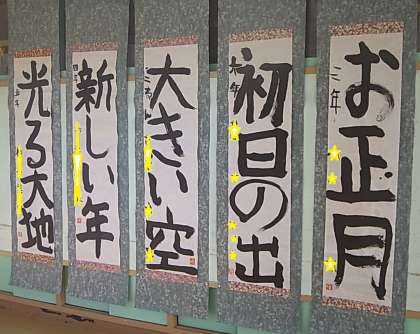 お正月
三年
初日の出
六年
大きい空
新しい年
四年
光る大地
五年